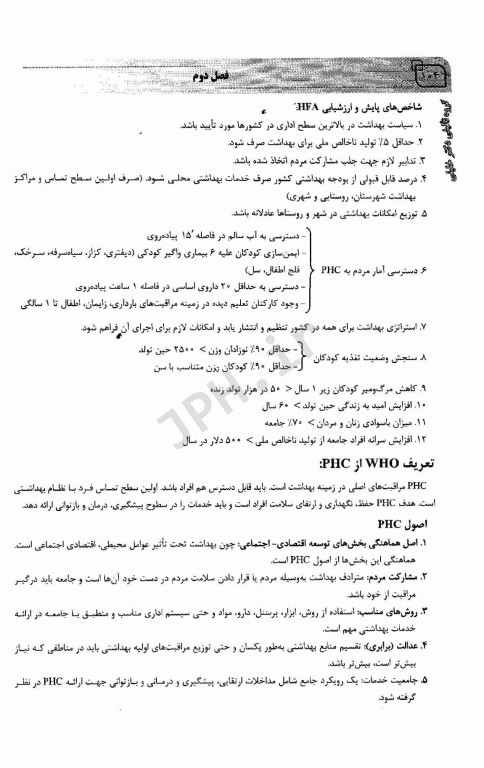 ۱۰۴
فصل دوم
شاخص‌های پایش و ارزشیابی HFA
۱. سیاست بهداشت در بالاترین سطح اداری در کشورها مورد تأیید باشد.
۲. حداقل ۵٪ تولید ناخالص ملی برای بهداشت صرف شود.
۳. تدابیر لازم جهت جلب مشارکت مردم اتخاذ شده باشد.
۴. درصد قابل قبولی از بودجه بهداشتی کشور صرف خدمات بهداشتی محلـی شـود. (صـرف اولـین سـطح تمـاس و مراکـز
بهداشت شهرستان، روستایی و شهری)
۵ توزیع امکانات بهداشتی در شهر و روستاها عادلانه باشد.
- دسترسی به آب سالم در فاصله ۱۵′ پیاده‌روی
- ایمن‌سازی کودکان علیه ۶ بیماری واگیر کودکی (دیفتری، کزاز، سیاه‌سرفه، سـرخک،
فلج اطفال، سل)
۶ دسترسی آمار مردم به PHC
- دسترسی به حداقل ۲۰ داروی اساسی در فاصله ۱ ساعت پیاده‌روی
- وجود کارکنان تعلیم دیده در زمینه مراقبت‌های بارداری، زایمان، اطفال تا ۱ سالگی
۷. استراتژی بهداشت برای همه در کشور تنظیم و انتشار یابد و امکانات لازم برای اجرای آن فراهم شود.
- حداقل ۹۰٪ نوزادان وزن > ۲۵۰۰ حین تولد
۸ سنجش وضعیت تغذیه کودکان
- حداقل ۹۰٪ کودکان رزن متناسب با سن
۹. کاهش مرگ‌ومیر کودکان زیر ۱ سال < ۵۰ در هزار تولد زنده
۱۰. افزایش امید به زندگی حین تولد > ۶۰ سال
۱۱. میزان باسوادی زنان و مردان > ۷۰٪ جامعه
۱۲. افزایش سرانه افراد جامعه از تولید ناخالص ملی > ۵۰۰ دلار در سال
تعریف WHO از PHC:
PHC مراقبت‌های اصلی در زمینه بهداشت است. باید قابل دسترس هم افراد باشد. اولین سطح تمـاس فـرد بـا نظـام بهداشتی
است. هدف PHC حفظ، نگهداری و ارتقای سلامت افراد است و باید خدمات را در سطوح پیشگیری، درمان و بازتوانی ارائه دهد.
اصول PHC
۱. اصل هماهنگی بخش‌های توسعه اقتصادی- اجتماعی: چون بهداشت تحت تأثیر عوامل محیطی، اقتصادی اجتماعی است.
هماهنگی این بخش‌ها از اصول PHC است.
۲. مشارکت مردم: مترادف بهداشت به‌وسیله مردم یا قرار دادن سلامت مردم در دست خود آن‌ها است و جامعه باید درگیـر
مراقبت از خود باشد.
۳. روش‌های مناسب: استفاده از روش، ابزار، پرسنل، دارو، مواد و حتی سیستم اداری مناسب و منطبـق بـا جامعـه در ارائـه
خدمات بهداشتی مهم است.
۴. عدالت (برابری): تقسیم منابع بهداشتی به‌طور یکسان و حتی توزیع مراقبت‌های اولیه بهداشتی باید در مناطقی کـه نیـاز
بیش‌تر است، بیش‌تر باشد.
۵. جامعیت خدمات: یک رویکرد جامع شامل مداخلات ارتقایی، پیشگیری و درمـانی و بـازتوانی جهـت ارائـه PHC در نظـر
گرفته شود.
JPH.ir